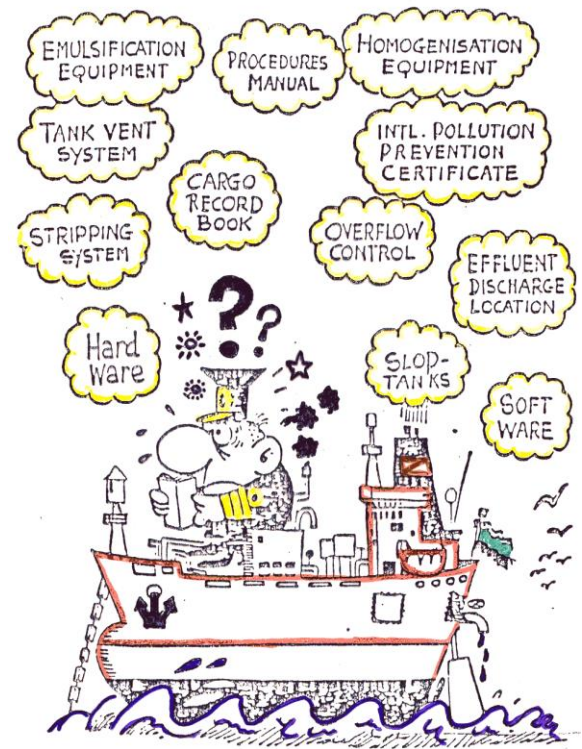 EMULSIFICATION
EQUIPMENT
PROCEDURES
MANUAL
HOMOGENISATION
EQUIPMENT
TANK VENT
SYSTEM
INTL. POLLUTION
PREVENTION
CERTIFICATE
CARGO
RECORD
BOOK
STRIPPING
SYSTEM
OVERFLOW
CONTROL
EFFLUENT
DISCHARGE
LOCATION
??
Hard
Ware
SLOP-
TANKS
SOFT
WARE